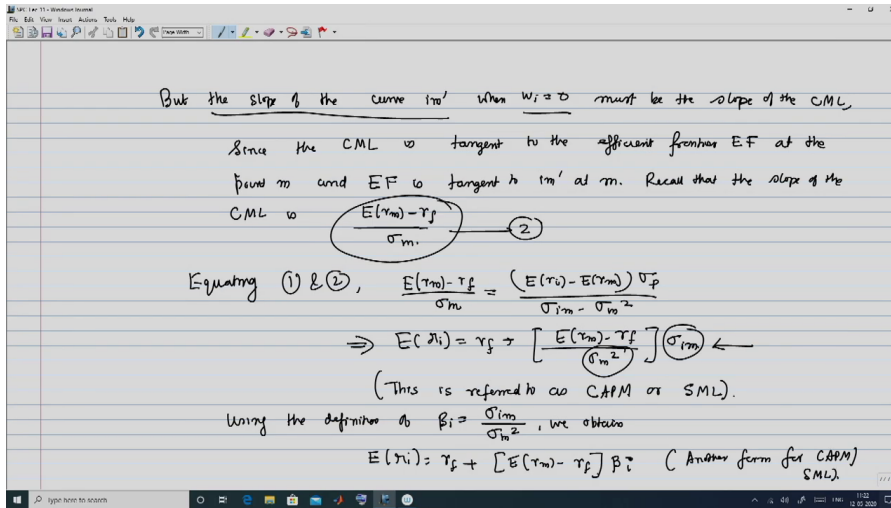 SPC Lec 11 - Windows Journal
File Edit View Insert Actions Tools Help
Page Width
But the slope of the curve im' when wi = 0 must be the slope of the CML,
Since the CML is tangent to the efficient frontier EF at the
point m and EF is tangent to im' at m. Recall that the slope of the
CML is (E(rm) - rf) / σm. — ②
Equating ① & ②, (E(rm) - rf) / σm = (E(ri) - E(rm)) σp / (σim - σm²)
⇒ E(ri) = rf + [(E(rm) - rf) / σm²] σim ←
(This is referred to as CAPM or SML).
Using the definition of βi = σim / σm², we obtain
E(ri) = rf + [E(rm) - rf] βi (Another form for CAPM/
SML).
Type here to search
ENG 11:22
12-03-2020